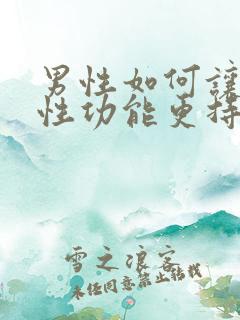 男性如何讓
性功能更持
雪之浪客
未经同意禁止转载